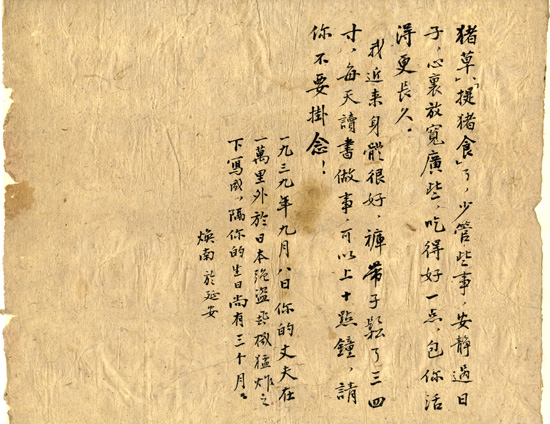 猪草”，“提猪食”了，少管些事，安靜過日
子，心裏放寬廣些，吃得好一点，包你活
得更長久。
我近来身體很好，褲带子鬆了三四
寸，每天讀書做事，可以上十點鐘，請
你不要掛念！
一九三九年九月八日你的丈夫在
一萬里外於日本强盗飛機猛炸之
下寫成，隔你的生日尚有三个月。
焕南於延安